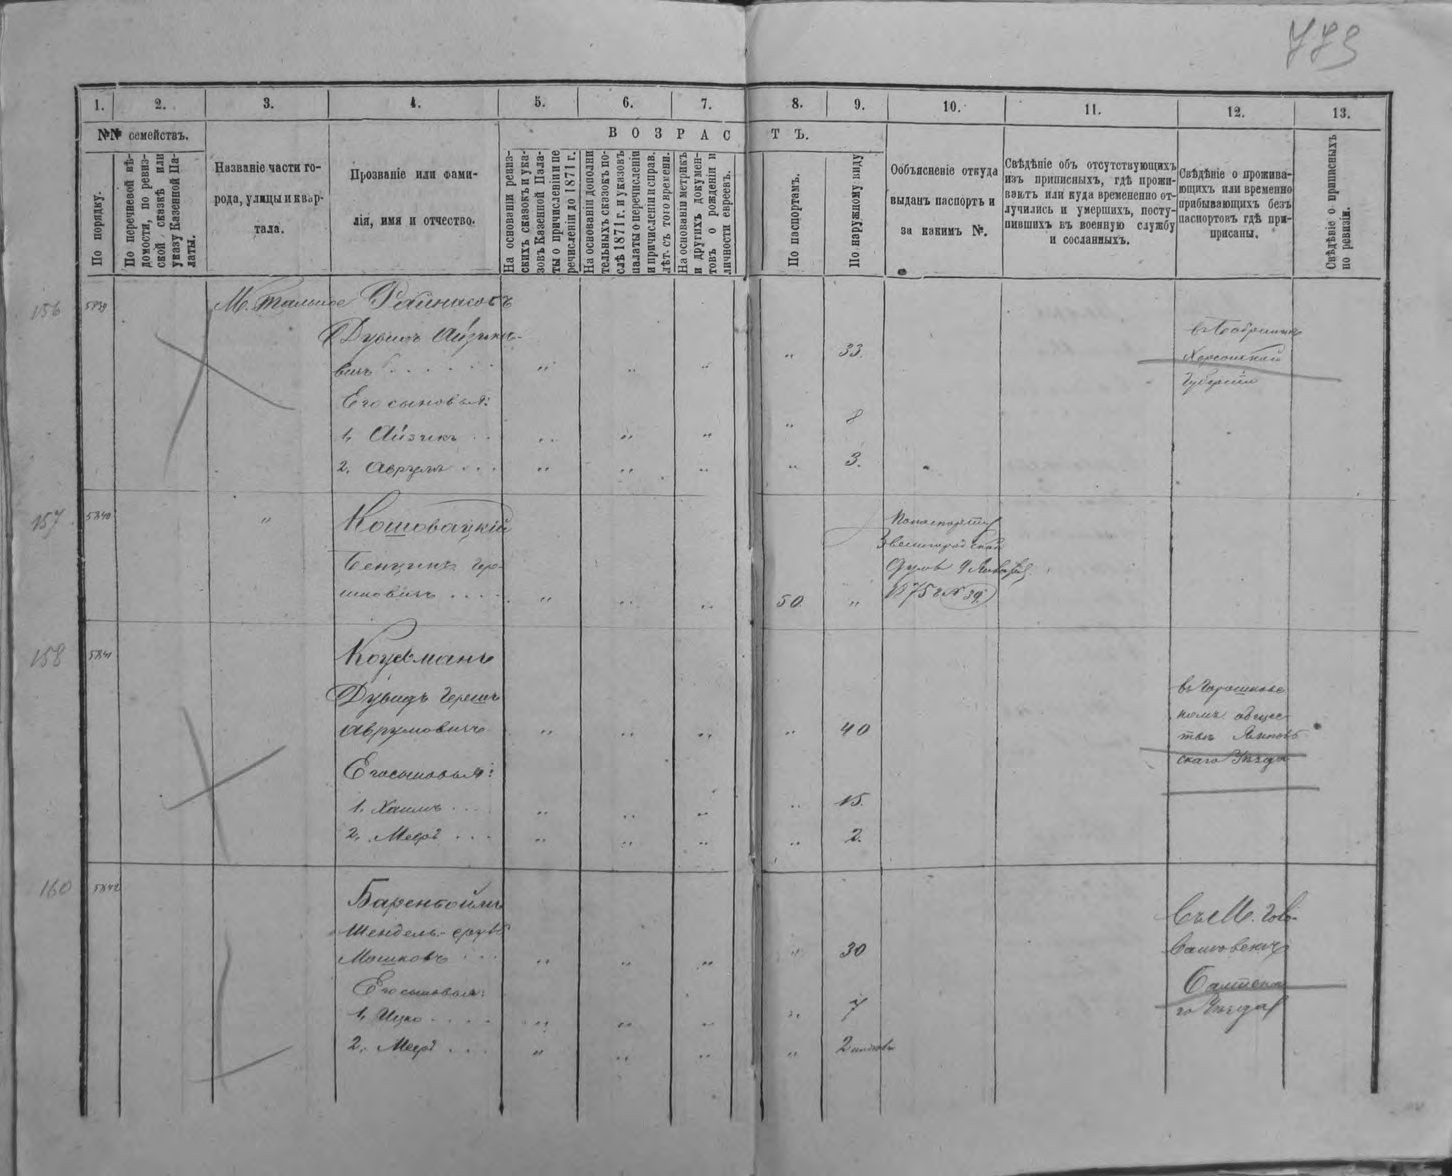 773
1. 2. 3. 4. 5. 6. 7. 8. 9. 10. 11. 12. 13.
№№ семействъ.
В О З Р А С Т Ъ.
По порядку.
По перечневой вѣ-
домости, по ревиз-
ской сказкѣ или
указу Казенной Па-
латы.
Названіе части го-
рода, улицы и квар-
тала.
Прозваніе или фами-
лія, имя и отчество.
На основаніи ревиз-
скихъ сказокъ и ука-
зовъ Казенной Пала-
ты о причисленіи и пе
речисленіи до 1871 г.
На основаніи дополни
тельныхъ сказокъ по-
слѣ 1871 г. и указовъ
палаты о перечисленіи
и причисленіи и справ.
лѣт. съ того времени.
На основаніи метрикъ
и другихъ докумен-
товъ о рожденіи и
личности евреевъ.
По паспортамъ.
По наружному виду
Объясненіе откуда
выданъ паспортъ и
за какимъ №.
Свѣдѣніе объ отсутствующихъ
изъ приписныхъ, гдѣ прожи-
ваютъ или куда временно от-
лучились и умершихъ, посту-
пившихъ въ военную службу
и сосланныхъ.
Свѣдѣніе о прожива-
ющихъ или временно
прибывающихъ безъ
паспортовъ гдѣ при-
писаны.
Свѣдѣніе о приписныхъ
по ревизіи.
156 5839 М. Тальное
Дувидъ Айзико-
вичъ 33.
Херсонской
Губерніи
Его сыновья:
1, Айзикъ 8
2, Аврумъ 3.
157 5840 Кошовацкій
По паспорту
Бенционъ Гер-
шковичъ 50.
Звенигородской
Думы 9 Января
1875 г. №
158 5841 Кауфманъ
Дувидъ Гершъ
Аврумовичъ 40
номъ общес-
твѣ
скаго Уѣзда
Его сыновья:
1, Хаимъ 15.
2, Мееръ 2.
160 5842 Баренбоймъ
Мошковъ 30
Его сыновья:
1, Ицко 7
го Уѣзда
2, Мееръ 2